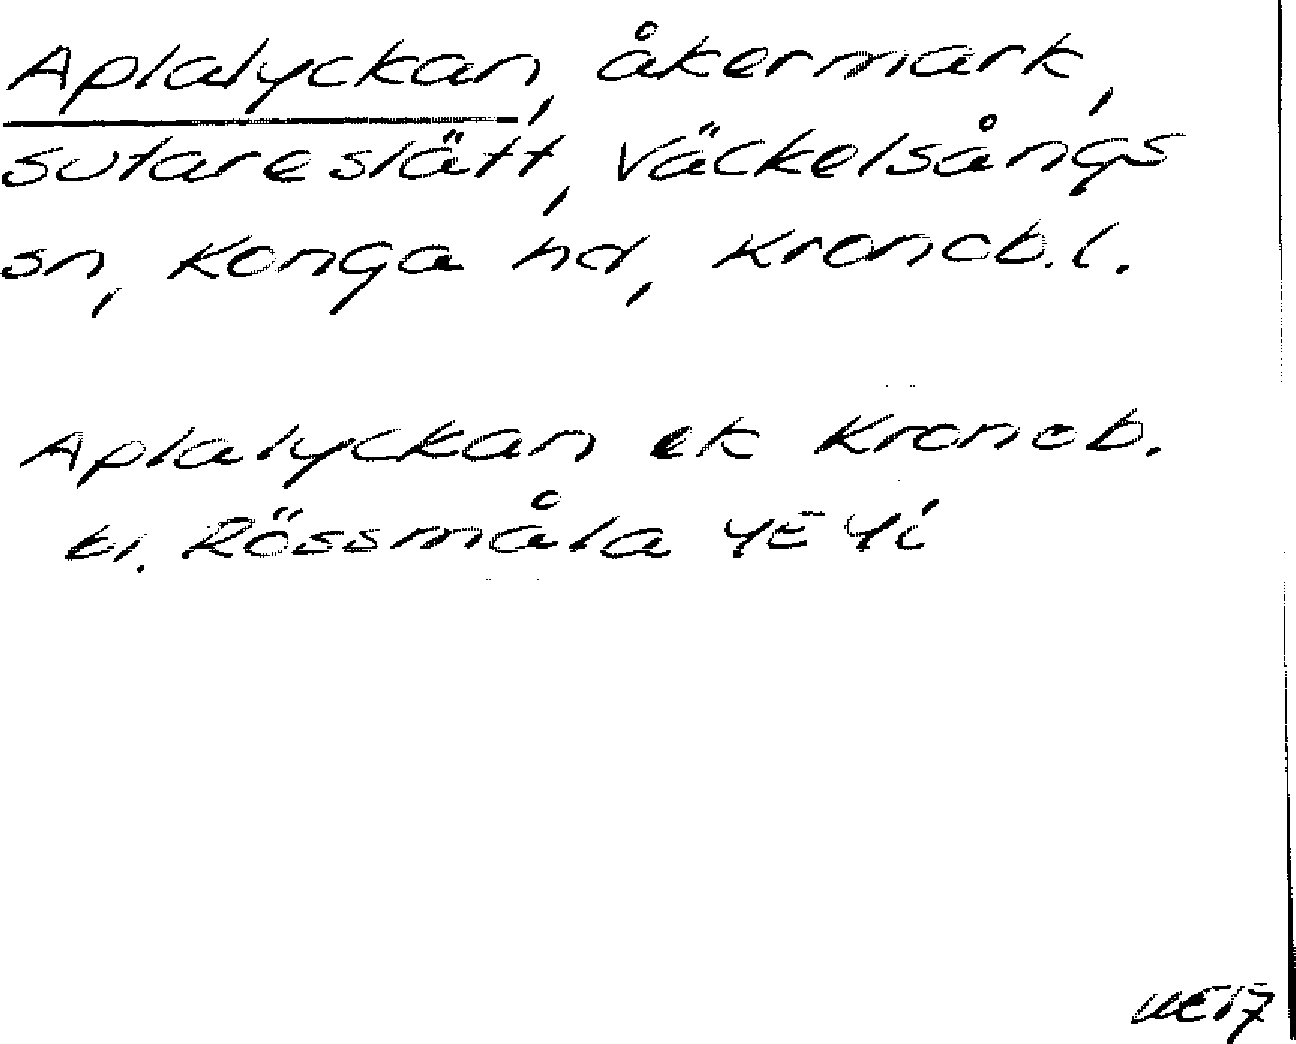 Aplalyckan, åkermark,
sutareslätt, Väckelsångs
sn, Konga hd, Kronob.l.
Aplalyckan ek Kronob.
bl. Rössmåla 4E 4i